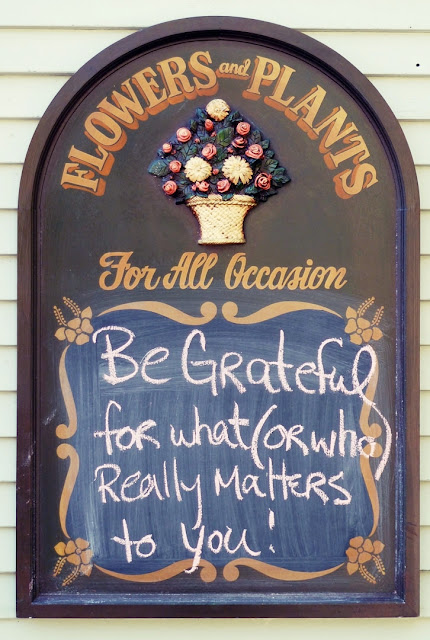 FLOWERS and PLANTS
For All Occasion
Be Grateful
for what (or who)
Really Matters
to you!